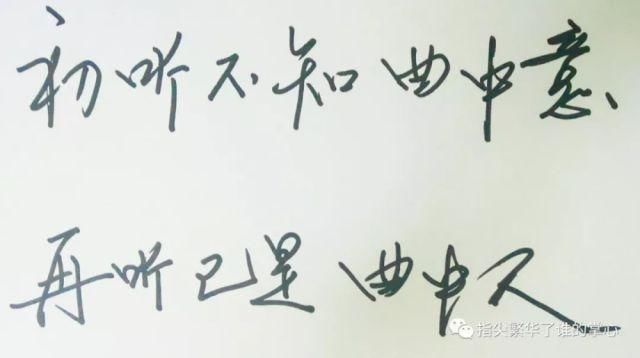 初听不知曲中意
再听已是曲中人
指尖繁华了谁的掌心